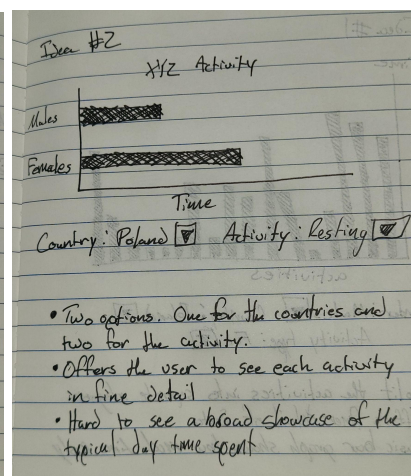 Idea #2
XYZ Activity
Males
Females
Time
Country: Poland Activity: Resting
• Two options. One for the countries and
two for the activity.
• Offers the user to see each activity
in fine detail
• Hard to see a broad showcase of the
typical day time spent